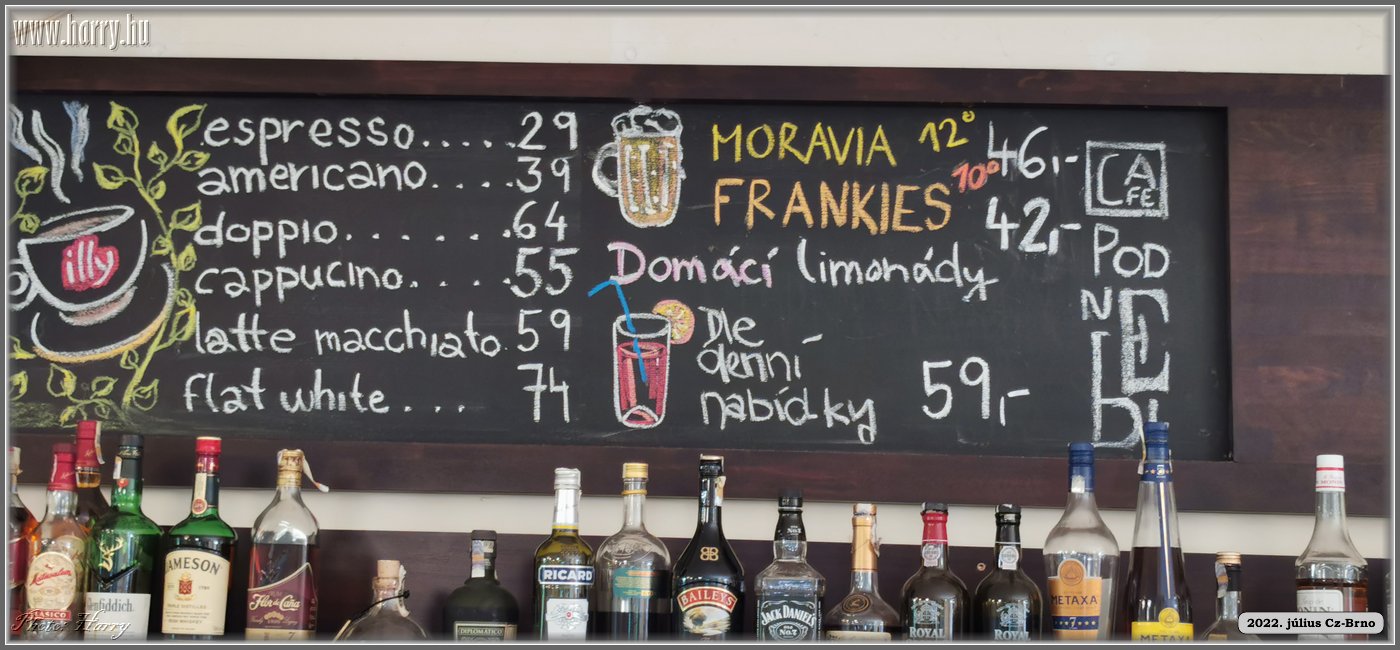 www.harry.hu
illy
espresso.....29
americano....39
doppio......64
cappucino.....55
latte macchiato.59
flat white... 74
MORAVIA 12° 46,-
FRANKIES 10° 42,-
Domácí limonády
Dle
denní
nabídky 59,-
CAFE
POD
NEBI
Matusalem
CLASICO
Glenfiddich
JAMESON
Flor de Caña
7
DIPLOMATICO
RICARD
BAILEYS
JACK DANIEL'S
No.7
ROYAL
ROYAL
METAXA
7
METAXA
Pieter Harry
2022. július Cz-Brno